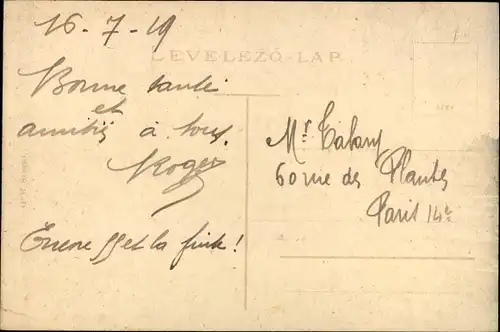 16-7-19
LEVELEZŐ-LAP
Bonne santé
et
amitiés à tous.
Roger
Encore et la fuite !
Mr Tabary
60 rue des Plantes
Paris 14e